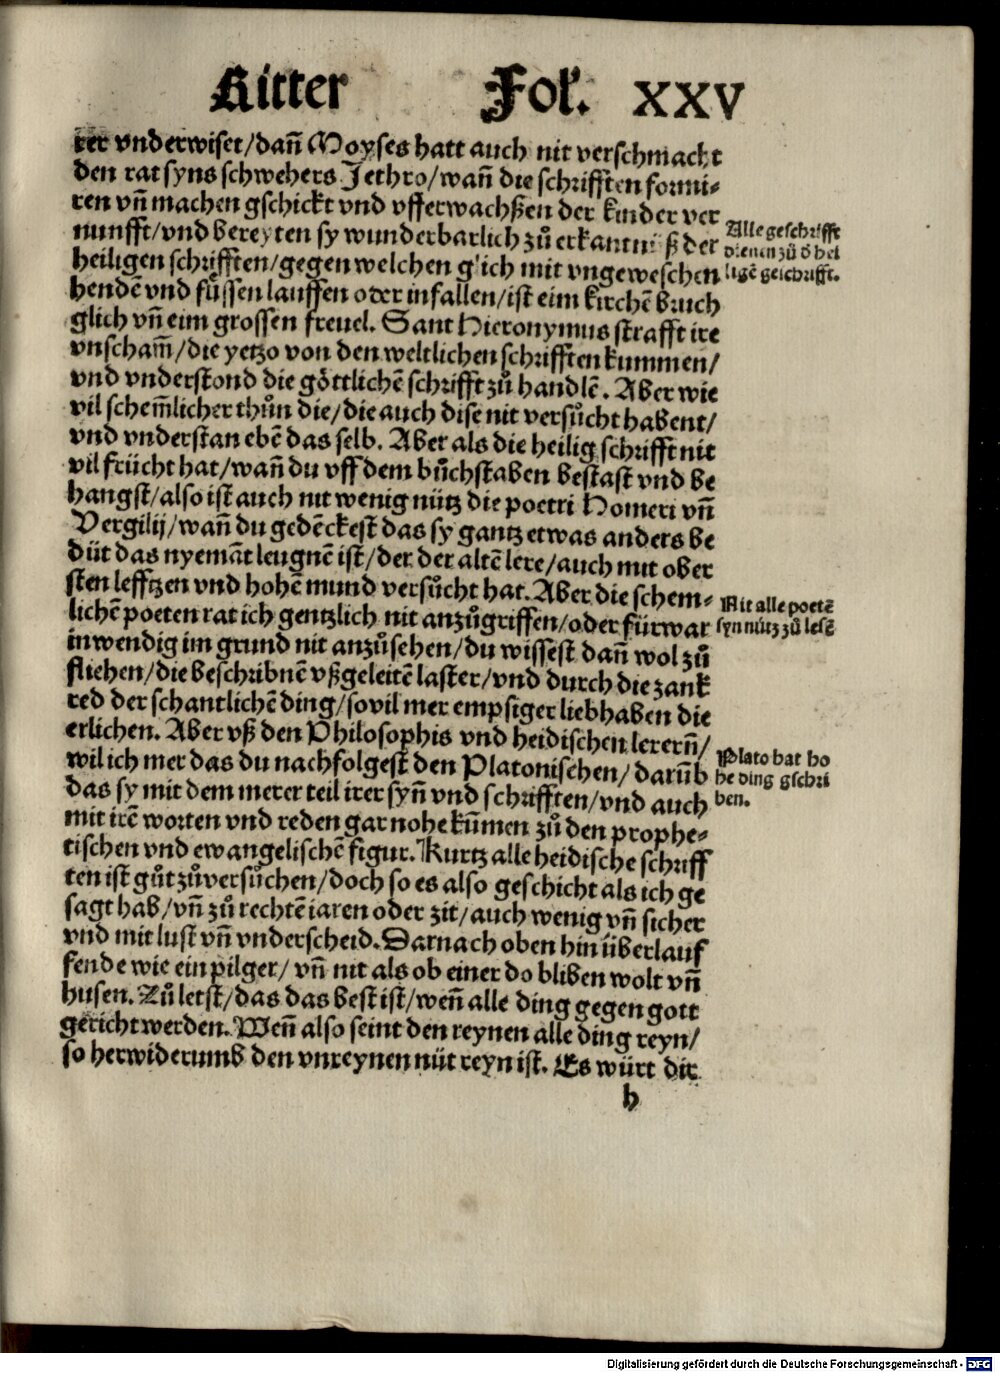 Ritter Fol. XXV
rer vnderwiset/dañ Moyses hatt auch nit verschmacht
den rat syns schwehers Jethro/wañ die schrifften formi-
ren vñ machen gschickt vnd vfferwachßen der kinder ver
nunfft/vnd bereyten sy wunderbarlich zů erkantniß der
heiligen schrifften/gegen welchen glich mit vngeweschen
hendē vnd fůssen lauffen oder infallen/ist eim kirchē bruch
glich vñ eim grossen freuel. Sant Hieronymus strafft ire
vnscham̃/die yetzo von den weltlichen schrifften kummen/
vnd vnderstond die göttlichē schrifft zů handlē. Aber wie
vil schem̃licher thůn die/die auch dise nit versůcht habent/
vnd vnderstan ebē das selb. Aber als die heilig schrifft nit
vil frücht hat/wañ du vff dem bůchstaben bestast vnd be
hangst/also ist auch nit wenig nütz die poetri Homeri vñ
Vergilij/wañ du gedēckest das sy gantz etwas anders be
düt das nyemāt leugnē ist/der der altē lere/auch mit ober
sten lefftzen vnd hohē mund versůcht hat. Aber die schem-
lichē poeten rat ich gentzlich nit anzůgriffen/oder fürwar
inwendig im grund nit anzůsehen/du wissest dañ wol zů
fliehen/die beschribnē vßgeleitē laster/vnd durch die zank
red der schantlichē ding/sovil mer empsiger liebhaben die
erlichen. Aber vß den Philosophis vnd heidischen lererñ/
wil ich mer das du nachfolgest den Platonischen/darūb
das sy mit dem merer teil irer syñ vnd schrifften/vnd auch
mit irē worten vnd reden gar nohe kūmen zů den prophe-
tischen vnd ewangelischē figur. Kurtz alle heidische schriff
ten ist gůt zůversůchen/doch so es also geschicht als ich ge
sagt hab/vñ zů rechtē iaren oder zit/auch wenig vñ sicher
vnd mit lust vñ vnderscheid. Darnach oben hin überlauf
fende wie ein pilger/vñ nit als ob einer do bliben wolt vñ
husen. Zů letst/das das best ist/weñ alle ding gegen gott
gericht werden. Weñ also seint den reynen alle ding reyn/
so herwiderumb den vnreynen nüt reyn ist. Es würt dir
h
Alle geschrifft
dienen zů d̄ hei
ligē geschrifft.
Nit alle poetē
syn nütz zů lesē
Plato hat ho
he ding gschri
ben.
Digitalisierung gefördert durch die Deutsche Forschungsgemeinschaft - DFG